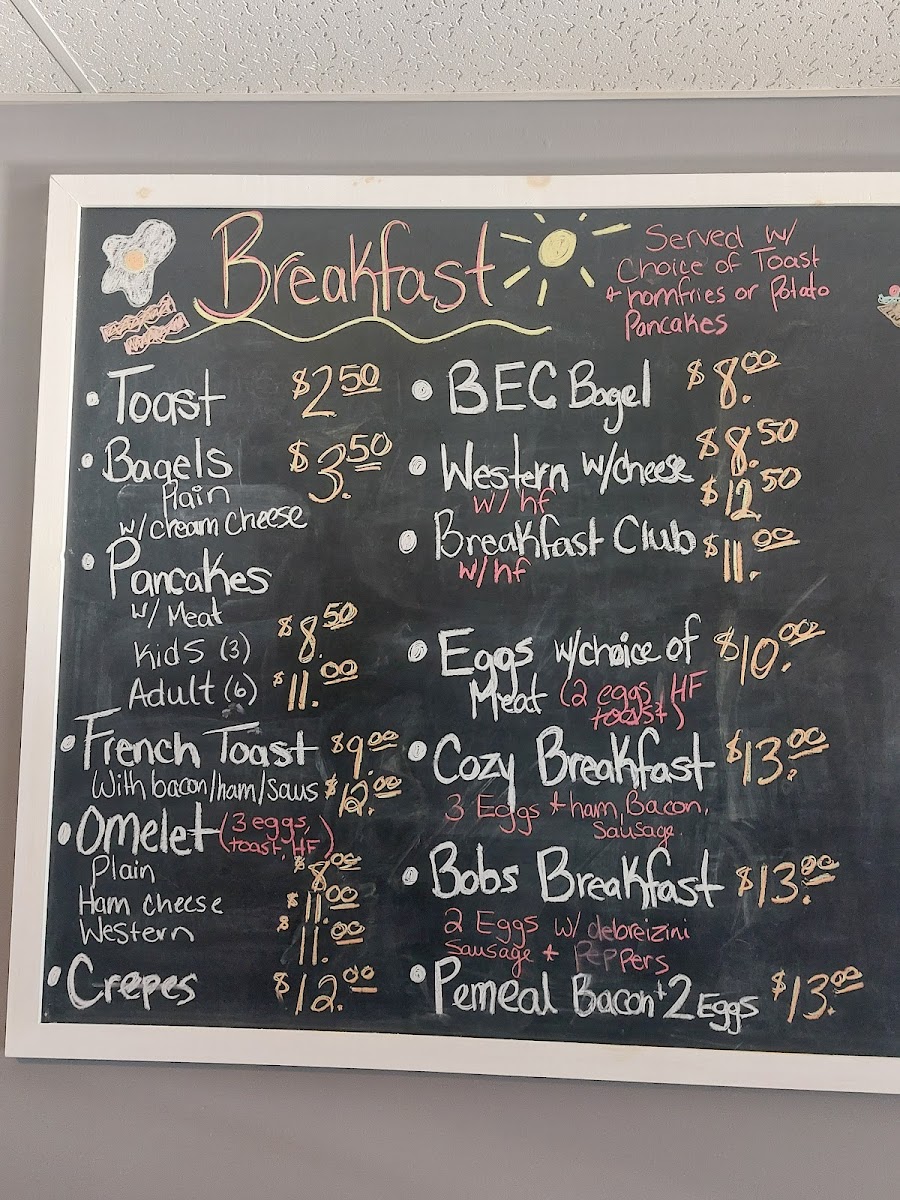 Breakfast
Served w/
Choice of Toast
+ homfries or Potato
Pancakes
• Toast $2.50
• Bagels $3.50
Plain
w/cream cheese
• Pancakes
w/ Meat
Kids (3) $8.50
Adult (6) $11.00
• French Toast $9.00
With bacon/ham/saus $12.00
• Omelet (3 eggs,
toast, HF)
Plain $8.00
Ham cheese $11.00
Western $11.00
• Crepes $12.00
• BEC Bagel $8.00
• Western w/cheese $8.50
w/ hf $12.50
• Breakfast Club $11.00
w/hf
• Eggs w/choice of $10.00
Meat (2 eggs, HF
toast)
• Cozy Breakfast $13.00
3 Eggs + ham, Bacon,
Sausage.
• Bobs Breakfast $13.00
2 Eggs w/ debreizini
Sausage + Peppers
• Pemeal Bacon + 2 Eggs $13.00